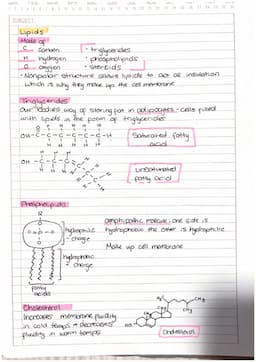 SUBJECT:
Lipids
Made of
C carbon
H hydrogen
O oxygen
• triglycerides
• phospholipids
• steroids
• Nonpolar structure allows lipids to act as insulation
which is why they make up the cell membrane
Triglycerides
Our bodies way of storing fat in adipocytes - cells filled
with lipids in the form of triglycerides
Saturated fatty
acid
Unsaturated
fatty acid
Phospholipids
Amphipathic molecule: one side is
hydrophobic the other is hydrophilic
Make up cell membrane
hydrophilic
- charge
hydrophobic
+ charge
fatty
acids
Cholesterol
Increases membrane fluidity
in cold temps + decreases
fluidity in warm temps
HO
CH3
CH3
Cholesterol